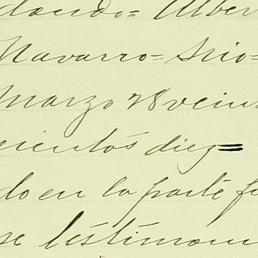 dando= Alber
Navarro= Srio=
Marzo 28 vein
cientos diez=
do en la parte fi
se testimon